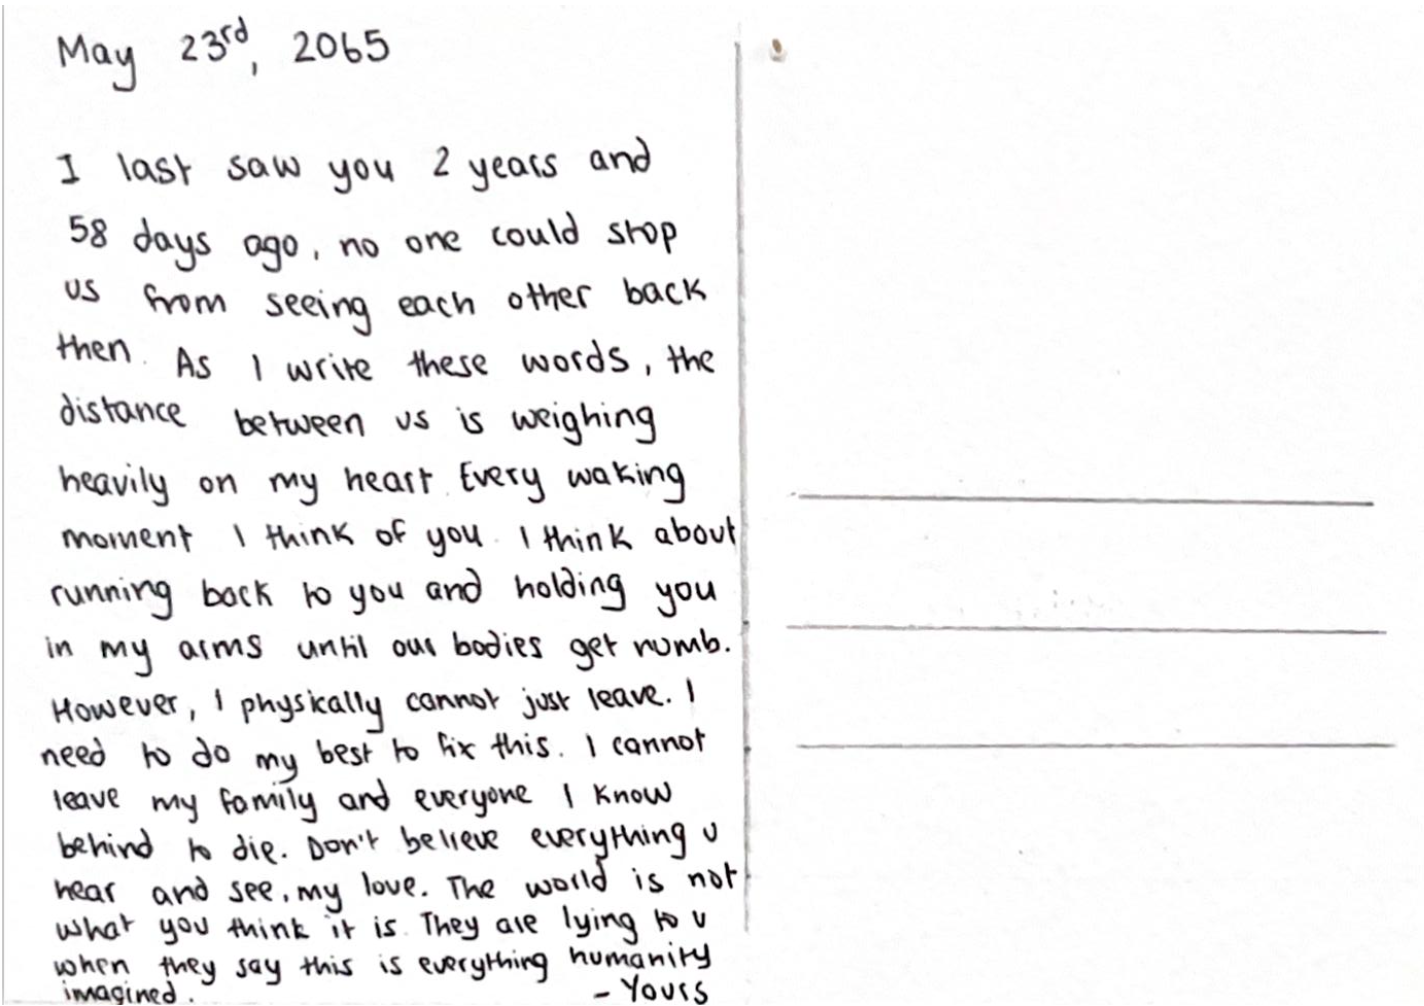 May 23rd, 2065
I last saw you 2 years and
58 days ago, no one could stop
us from seeing each other back
then. As I write these words, the
distance between us is weighing
heavily on my heart. Every waking
moment I think of you. I think about
running back to you and holding you
in my arms until our bodies get numb.
However, I physically cannot just leave. I
need to do my best to fix this. I cannot
leave my family and everyone I know
behind to die. Don't believe everything u
hear and see, my love. The world is not
what you think it is. They are lying to u
when they say this is everything humanity
imagined.
- Yours